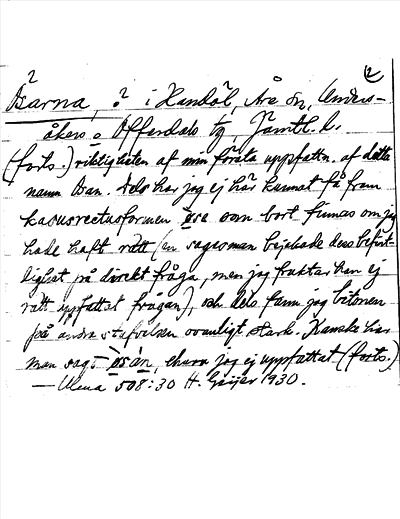 2
Ösarna, ? i Handöl, Åre sn, Unders-
åkers o Offerdals tg, Jämtl. l.
(forts.) riktigheten af min första uppfattn. af detta
namn ösan. Dels har jag ej här kunnat få fram
kasusrectusformen öse som bort finnas om jag
hade haft rätt (en sagesman bejakade dess befint-
lighet på direkt fråga, men jag fruktar han ej
rätt uppfattat frågan), och dels fann jag bitonen
på andra stafvelsen ovanligt stark. Kanske har
man sagt ösàn, ehuru jag ej uppfattat (forts.)
— Ulma 508:30 H. Geijer 1930.